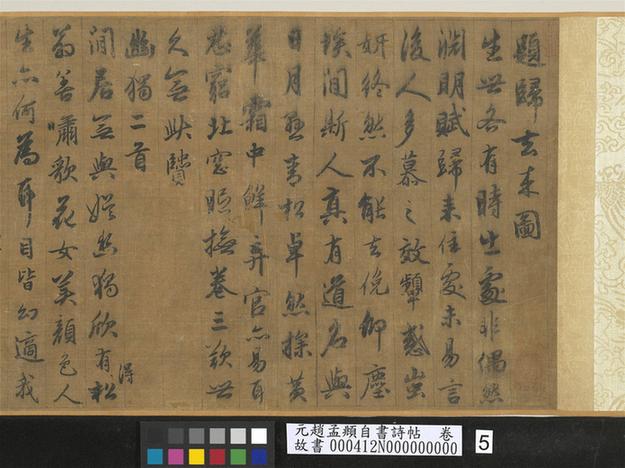 題歸去來圖
生世各有時出處非偶然
淵明賦歸來佳處未易言
後人多慕之效顰惑蚩
妍終然不能去俛仰塵
埃間斯人真有道名與
日月懸青松卓然操黃
華霜中鮮弃官亦易耳
忍窮北窓眠撫卷三歎世
久無此賢
幽獨二首
閒居無與娛幽獨欣有得松
翁善嘯歌花女美顏色人
生亦何為耳目皆幻適我
元趙孟頫自書詩帖 卷
故書 000412N000000000
5